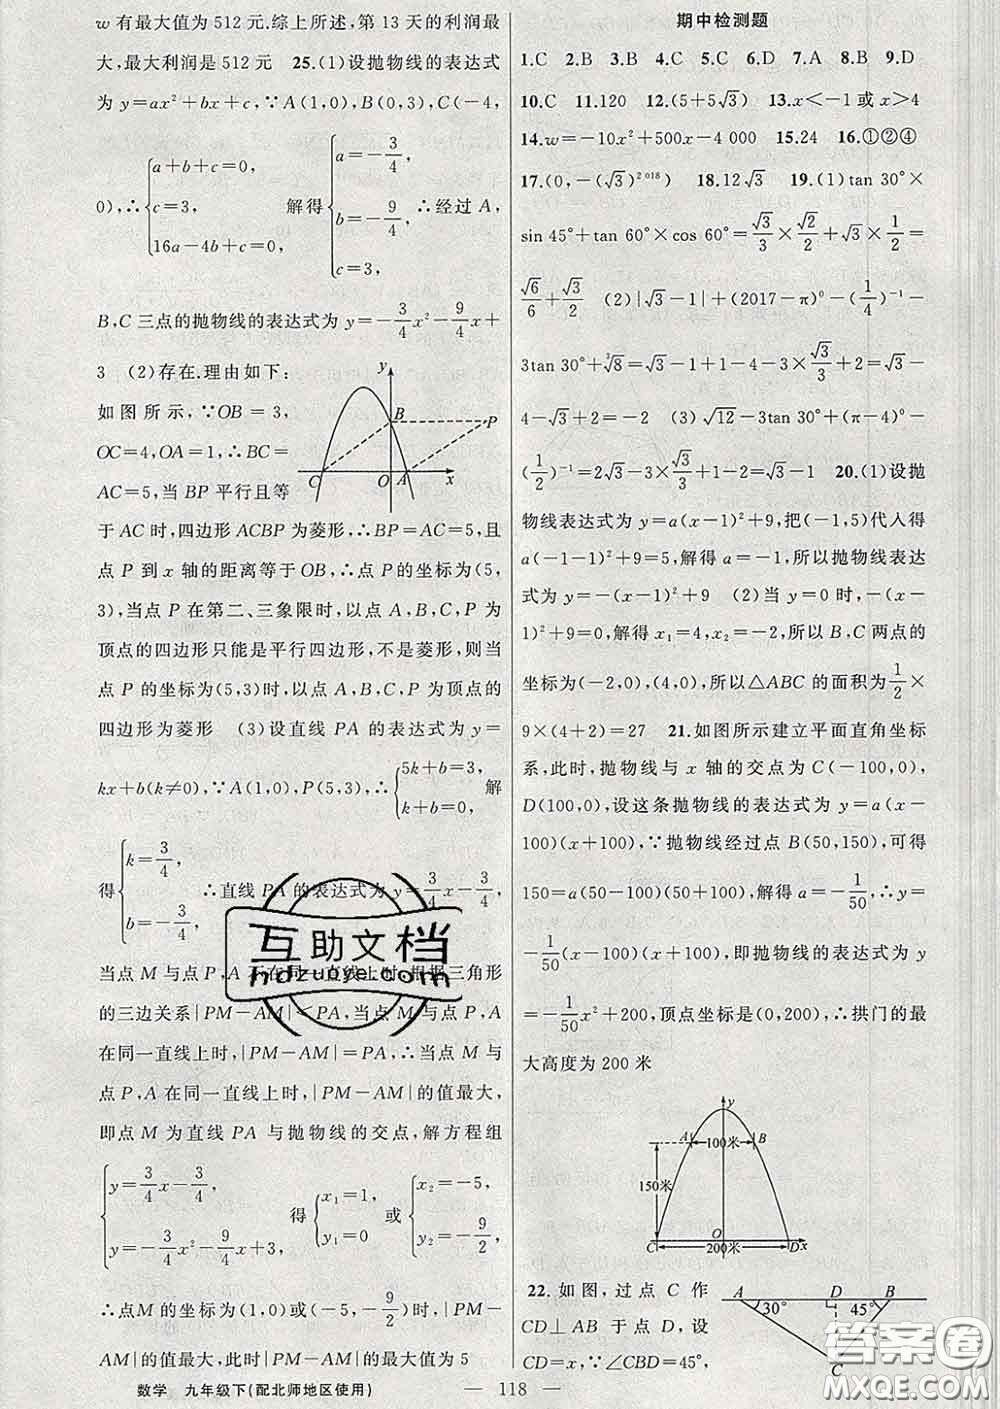 w有最大值为512元.综上所述,第13天的利润最
大,最大利润是512元 25.(1)设抛物线的表达式
为y=ax²+bx+c,∵A(1,0),B(0,3),C(-4,
0),∴{a+b+c=0, c=3, 16a-4b+c=0, 解得{a=-3/4, b=-9/4, c=3, ∴经过A,
B,C三点的抛物线的表达式为y=-3/4x²-9/4x+
3 (2)存在.理由如下:
如图所示,∵OB=3,
OC=4,OA=1,∴BC=
AC=5,当BP平行且等
于AC时,四边形ACBP为菱形,∴BP=AC=5,且
点P到x轴的距离等于OB,∴点P的坐标为(5,
3),当点P在第二、三象限时,以点A,B,C,P为
顶点的四边形只能是平行四边形,不是菱形,∴当
点P的坐标为(5,3)时,以点A,B,C,P为顶点的
四边形为菱形 (3)设直线PA的表达式为y=
kx+b(k≠0),∵A(1,0),P(5,3),∴{5k+b=3, k+b=0, 解
得{k=3/4, b=-3/4, ∴直线PA的表达式为y=3/4x-3/4,
当点M与点P,A不在同一直线上时,根据三角形
的三边关系|PM-AM|<PA,当点M与点P,A
在同一直线上时,|PM-AM|=PA,∴当点M与
点P,A在同一直线上时,|PM-AM|的值最大,
即点M为直线PA与抛物线的交点,解方程组
{y=3/4x-3/4, y=-3/4x²-9/4x+3, 得{x₁=1, y₁=0 或{x₂=-5, y₂=-9/2,
∴点M的坐标为(1,0)或(-5,-9/2)时,|PM-
AM|的值最大,此时|PM-AM|的最大值为5
y
B
P
C
O
A
x
期中检测题
1.C 2.B 3.B 4.C 5.C 6.D 7.A 8.B 9.D
10.C 11.120 12.(5+5√3) 13.x<-1或x>4
14.w=-10x²+500x-4 000 15.24 16.①②④
17.(0,-(√3)²⁰¹⁸) 18.12√3 19.(1)tan 30°×
sin 45°+tan 60°×cos 60°=√3/3×√2/2+√3×1/2=
√6/6+√3/2 (2)|√3-1|+(2017-π)⁰-(1/4)⁻¹-
3tan 30°+³√8=√3-1+1-4-3×√3/3+2=√3-
4-√3+2=-2 (3)√12-3tan 30°+(π-4)⁰-
(1/2)⁻¹=2√3-3×√3/3+1-2=√3-1 20.(1)设抛
物线表达式为y=a(x-1)²+9,把(-1,5)代入得
a(-1-1)²+9=5,解得a=-1,所以抛物线表达
式为y=-(x-1)²+9 (2)当y=0时,-(x-
1)²+9=0,解得x₁=4,x₂=-2,所以B,C两点的
坐标为(-2,0),(4,0),所以△ABC的面积为1/2×
9×(4+2)=27 21.如图所示建立平面直角坐标
系,此时,抛物线与x轴的交点为C(-100,0),
D(100,0),设这条抛物线的表达式为y=a(x-
100)(x+100),∵抛物线经过点B(50,150),可得
150=a(50-100)(50+100),解得a=-1/50,∴y=
-1/50(x-100)(x+100),即抛物线的表达式为y
=-1/50x²+200,顶点坐标是(0,200),∴拱门的最
大高度为200米
y
A
100米
B
150米
O
C
200米
D
x
22.如图,过点C作
CD⊥AB于点D,设
CD=x米,∵∠CBD=45°,
A
30°
D
45°
B
C
数学 九年级下(配北师地区使用)
— 118 —
互助文档
hdzuoye.com
答案圈
MXQE.COM